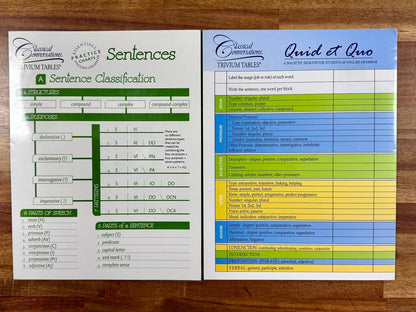 Classical
Conversations®
TRIVIUM TABLES®
ESSENTIALS
PRACTICE
CHARTS
Sentences
A Sentence Classification
4 STRUCTURES
simple
compound
complex
compound-complex
4 PURPOSES
declarative (.)
exclamatory (!)
interrogative (?)
imperative (.!)
7 PATTERNS
S Vi
S Vt DO
S Vl PN
S Vl PA
S Vt IO DO
S Vt DO OCN
S Vt DO OCA
There are
112 different
sentence types
that can be
created by
combining the
four structures +
four purposes +
seven patterns.
4 x 4 x 7 = 112
8 PARTS OF SPEECH
noun (N)
verb (V)
pronoun (P)
adverb (AV)
conjunction (C)
interjection (I)
preposition (PP)
adjective (AJ)
5 PARTS of a SENTENCE
subject (S)
predicate
capital letter
end mark (. ? !)
complete sense
Classical
Conversations®
TRIVIUM TABLES®
Quid et Quo
A DIALECTIC DESKTOP FOR STUDENTS OF ENGLISH GRAMMAR
Label the usage (job or role) of each word.
Write the sentence, one word per block.
NOUN
Number: singular, plural
Type: common, proper
concrete, abstract, collective, compound
PRONOUN
Personal Pronoun:
Case: nominative, objective, possessive
Person: 1st, 2nd, 3rd
Number: singular, plural
Gender: masculine, feminine, neuter, common
Other Pronoun: demonstrative, interrogative, indefinite,
ADJECTIVE
Descriptive - degree: positive, comparative, superlative
Possessive
Limiting: articles, numbers, other pronouns
VERB
Type: intransitive, transitive, linking, helping
Tense: present, past, future
Form: simple, perfect, progressive, perfect-progressive
Number: singular, plural
Person: 1st, 2nd, 3rd
Voice: active, passive
Mood: indicative, subjunctive, imperative
ADVERB
Simple - degree: positive, comparative, superlative
Affirmative, Negative
CONJUNCTION: coordinating, subordinating, correlative, conjunctive
INTERJECTION
PREPOSITION (PHRASE): adverbial, adjectival
VERBAL: gerund, participle, infinitive